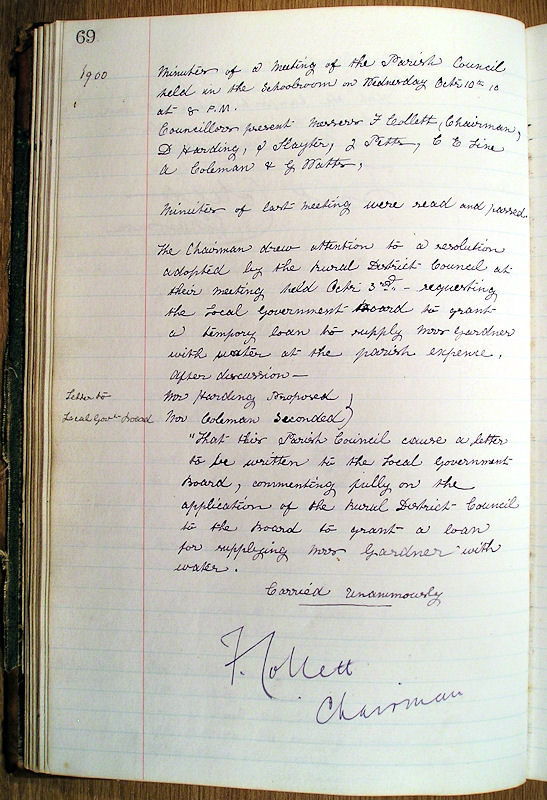 69
1900
Minutes of a Meeting of the Parish Council
held in the Schoolroom on Wednesday Octr 10th 10
at 8 P.M.
Councillors present Messrs F Collett (Chairman,
D Harding, J Slayter, J Petts, C E Line
A Coleman & G Watts,
Minutes of last meeting were read and passed.
The Chairman drew attention to a resolution
adopted by the Rural District Council at
their meeting held Octr 3rd - requesting
the Local Government Board to grant
a tempory loan to supply Mrs Gardner
with water at the parish expense.
After discussion —
Mr Harding Proposed )
Letter to
Local Govt Board
Mr Coleman Seconded )
"That this Parish Council cause a letter
to be written to the Local Government
Board, commenting fully on the
application of the Rural District Council
to the Board to grant a loan
for supplying Mrs Gardner with
water.
Carried Unanimously
F. Collett
Chairman